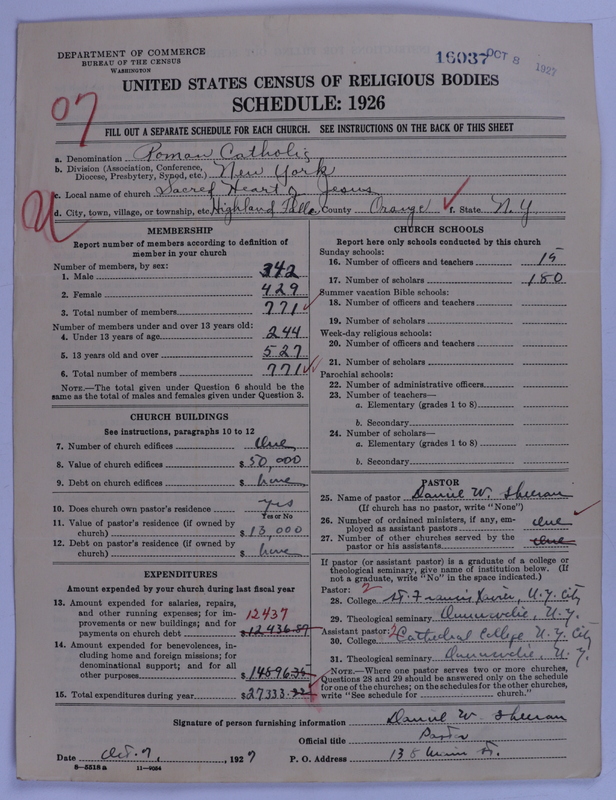 DEPARTMENT OF COMMERCE
BUREAU OF THE CENSUS
WASHINGTON
16037 OCT 8 1927
UNITED STATES CENSUS OF RELIGIOUS BODIES
SCHEDULE: 1926
FILL OUT A SEPARATE SCHEDULE FOR EACH CHURCH. SEE INSTRUCTIONS ON THE BACK OF THIS SHEET
a. Denomination Roman Catholic
b. Division (Association, Conference, Diocese, Presbytery, Synod, etc.) New York
c. Local name of church Sacred Heart of Jesus
d. City, town, village, or township, etc. Highland Falls County Orange f. State N.Y
MEMBERSHIP
Report number of members according to definition of
member in your church
Number of members, by sex:
1. Male 342
2. Female 429
3. Total number of members 771
Number of members under and over 13 years old:
4. Under 13 years of age 244
5. 13 years old and over 527
6. Total number of members 771
NOTE.—The total given under Question 6 should be
same as the total of males and females given under Question 3.
CHURCH BUILDINGS
See instructions, paragraphs 10 to 12
7. Number of church edifices One
8. Value of church edifices $ 50,000
9. Debt on church edifices $
10. Does church own pastor's residence yes
Yes or No
11. Value of pastor's residence (if owned by
church) $ 13,000
12. Debt on pastor's residence (if owned by
church) $
EXPENDITURES
Amount expended by your church during last fiscal year
13. Amount expended for salaries, repairs,
and other running expenses; for im-
provements or new buildings; and for
payments on church debt 12437
$ 12436.87
14. Amount expended for benevolences, in-
cluding home and foreign missions; for
denominational support; and for all
other purposes $ 14896.35
15. Total expenditures during year $ 27333.22
CHURCH SCHOOLS
Report here only schools conducted by this church
Sunday schools:
16. Number of officers and teachers 15
17. Number of scholars 180
Summer vacation Bible schools:
18. Number of officers and teachers
19. Number of scholars
Week-day religious schools:
20. Number of officers and teachers
21. Number of scholars
Parochial schools:
22. Number of administrative officers
23. Number of teachers—
a. Elementary (grades 1 to 8)
b. Secondary
24. Number of scholars—
a. Elementary (grades 1 to 8)
b. Secondary
PASTOR
25. Name of pastor Daniel W. Sheeran
(If church has no pastor, write "None")
26. Number of ordained ministers, if any, em-
ployed as assistant pastors one
27. Number of other churches served by the
pastor or his assistants one
If pastor (or assistant pastor) is a graduate of a college or
theological seminary, give name of institution below. (If
not a graduate, write "No" in the space indicated.)
Pastor: 2
28. College St. Francis Xavier, N.Y. City
29. Theological seminary Dunwoodie, N.Y.
Assistant pastor: 2
30. College Cathedral College N.Y. City
31. Theological seminary Dunwoodie, N.Y.
NOTE.—Where one pastor serves two or more churches,
Questions 28 and 29 should be answered only on the schedule
for one of the churches; on the schedules for the other churches,
write "See schedule for church."
Signature of person furnishing information Daniel W. Sheeran
Official title Pastor
Date Oct. 7, 1927 P. O. Address 138 Main St.
8—5518 a 11—9064